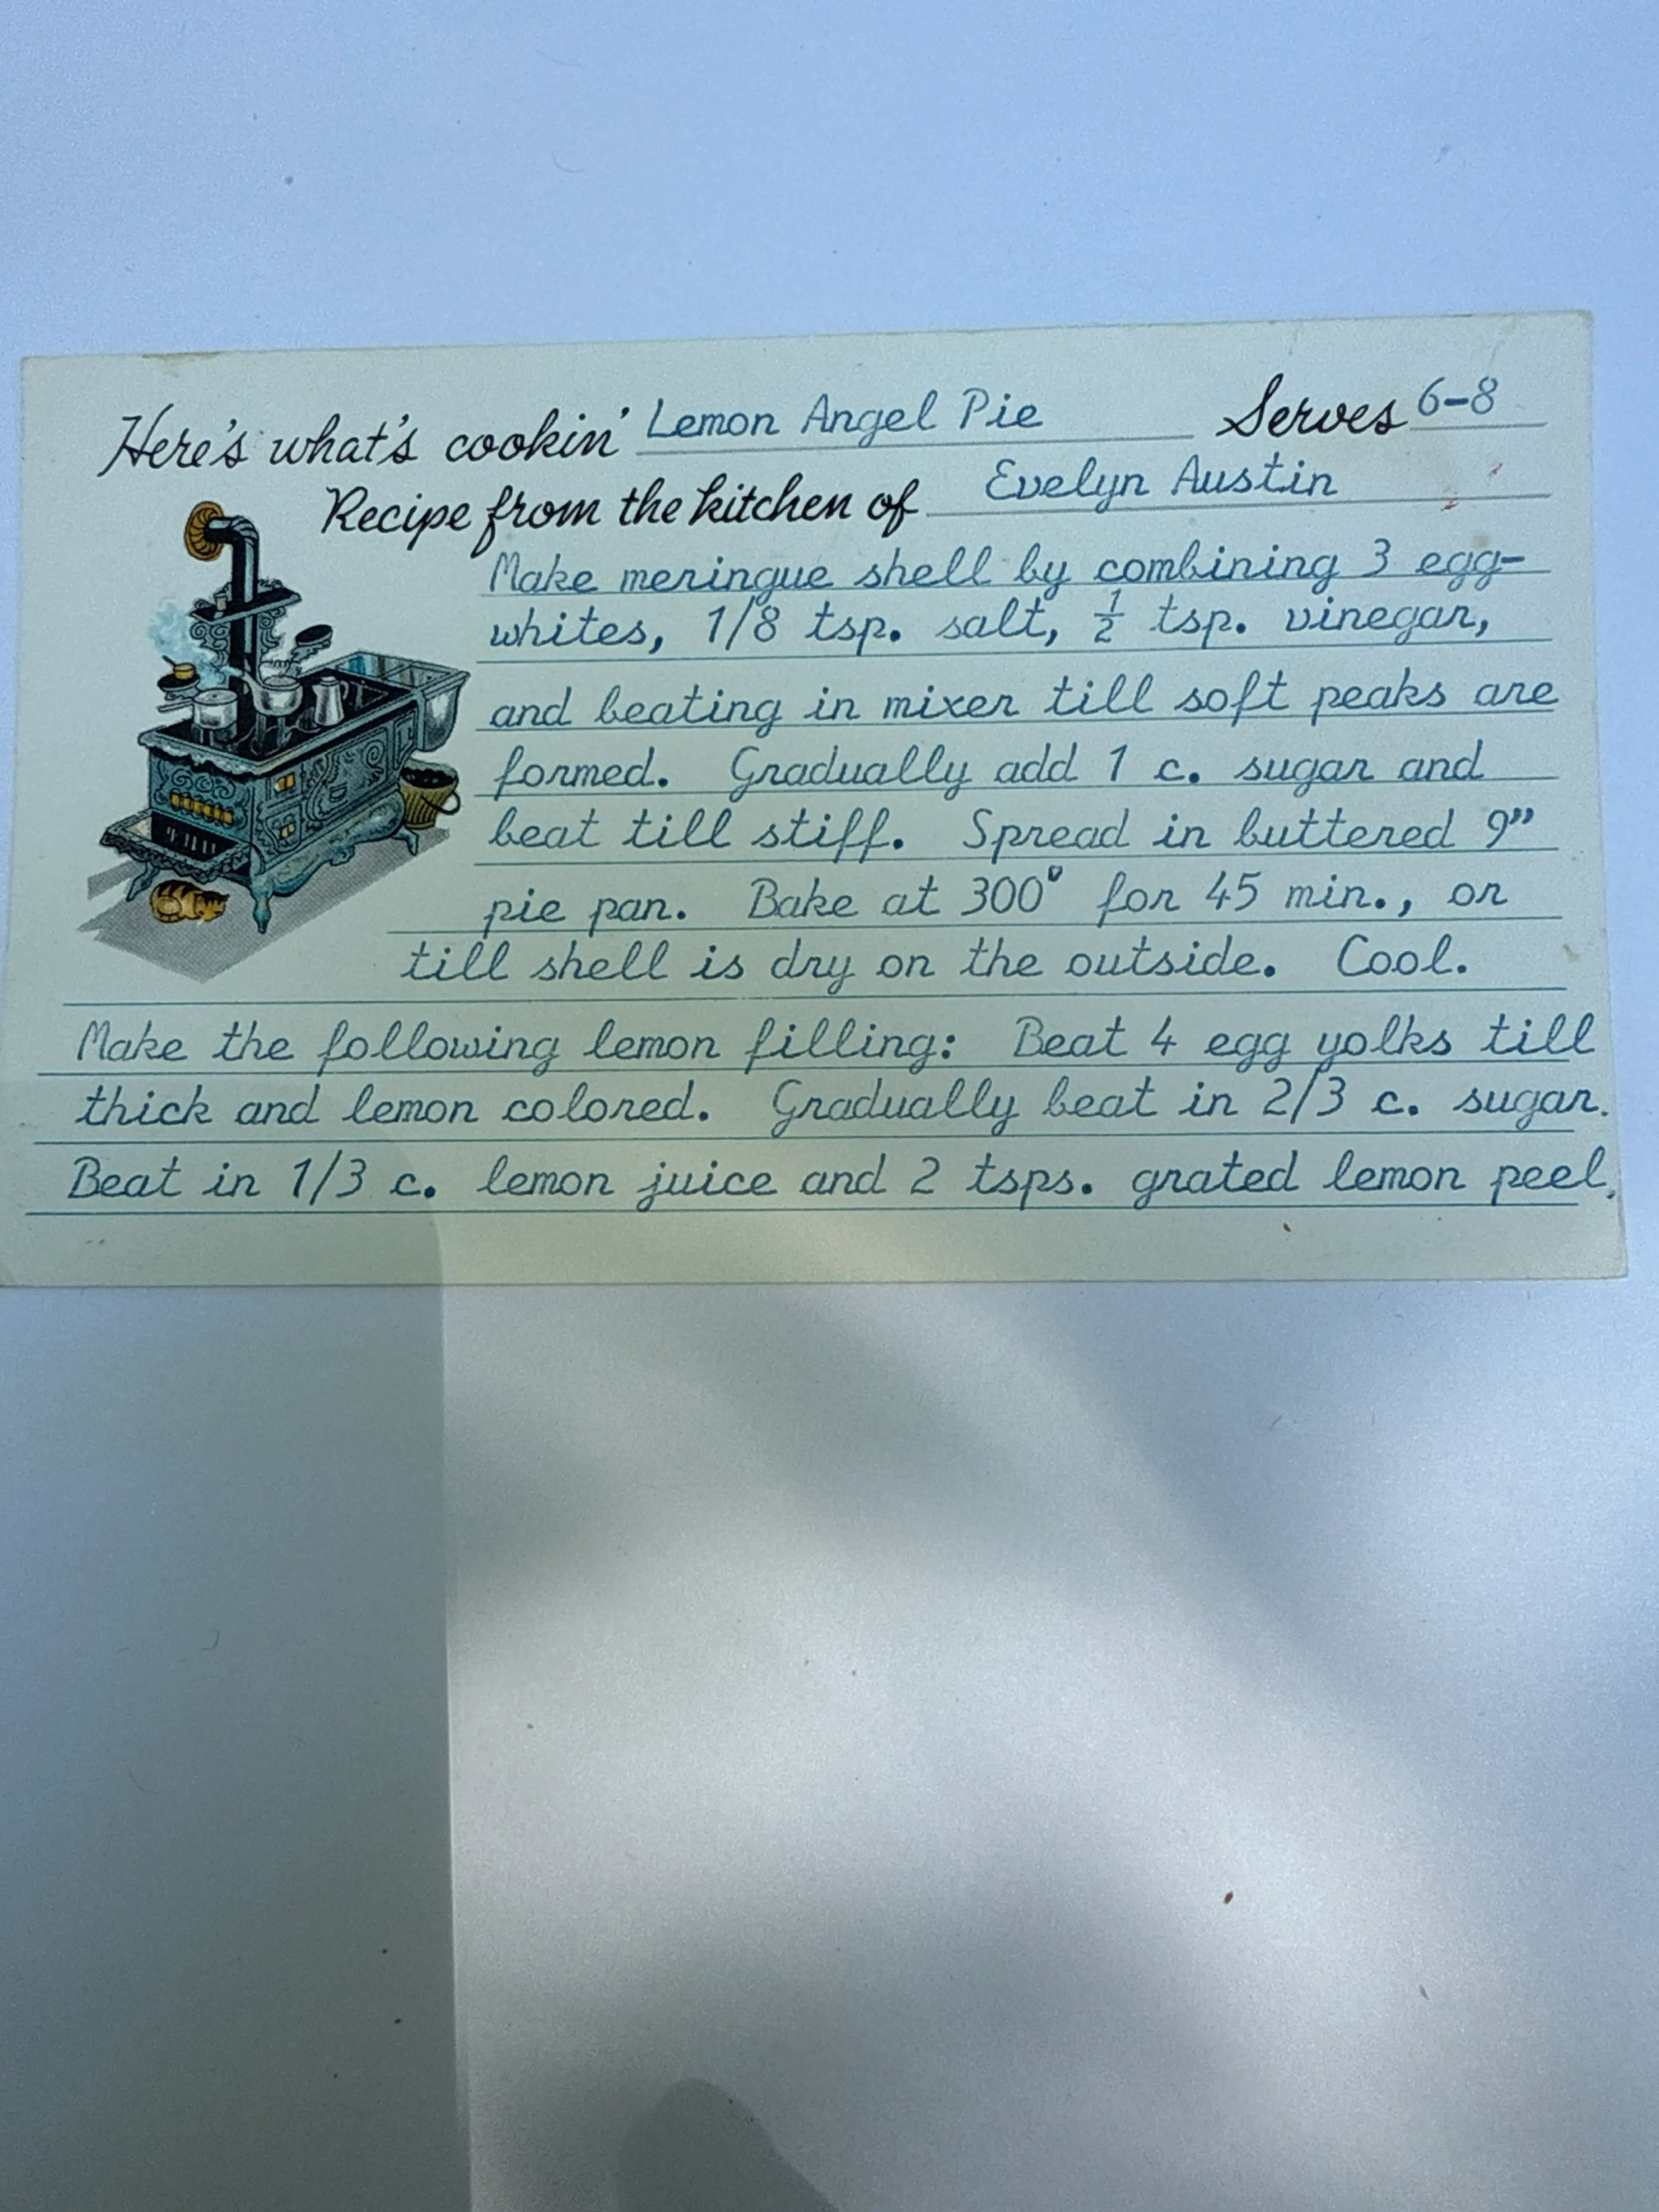 Here's what's cookin' Lemon Angel Pie Serves 6-8
Recipe from the kitchen of Evelyn Austin
Make meringue shell by combining 3 egg-
whites, 1/8 tsp. salt, ½ tsp. vinegar,
and beating in mixer till soft peaks are
formed. Gradually add 1 c. sugar and
beat till stiff. Spread in buttered 9"
pie pan. Bake at 300° for 45 min., or
till shell is dry on the outside. Cool.
Make the following lemon filling: Beat 4 egg yolks till
thick and lemon colored. Gradually beat in 2/3 c. sugar.
Beat in 1/3 c. lemon juice and 2 tsps. grated lemon peel.